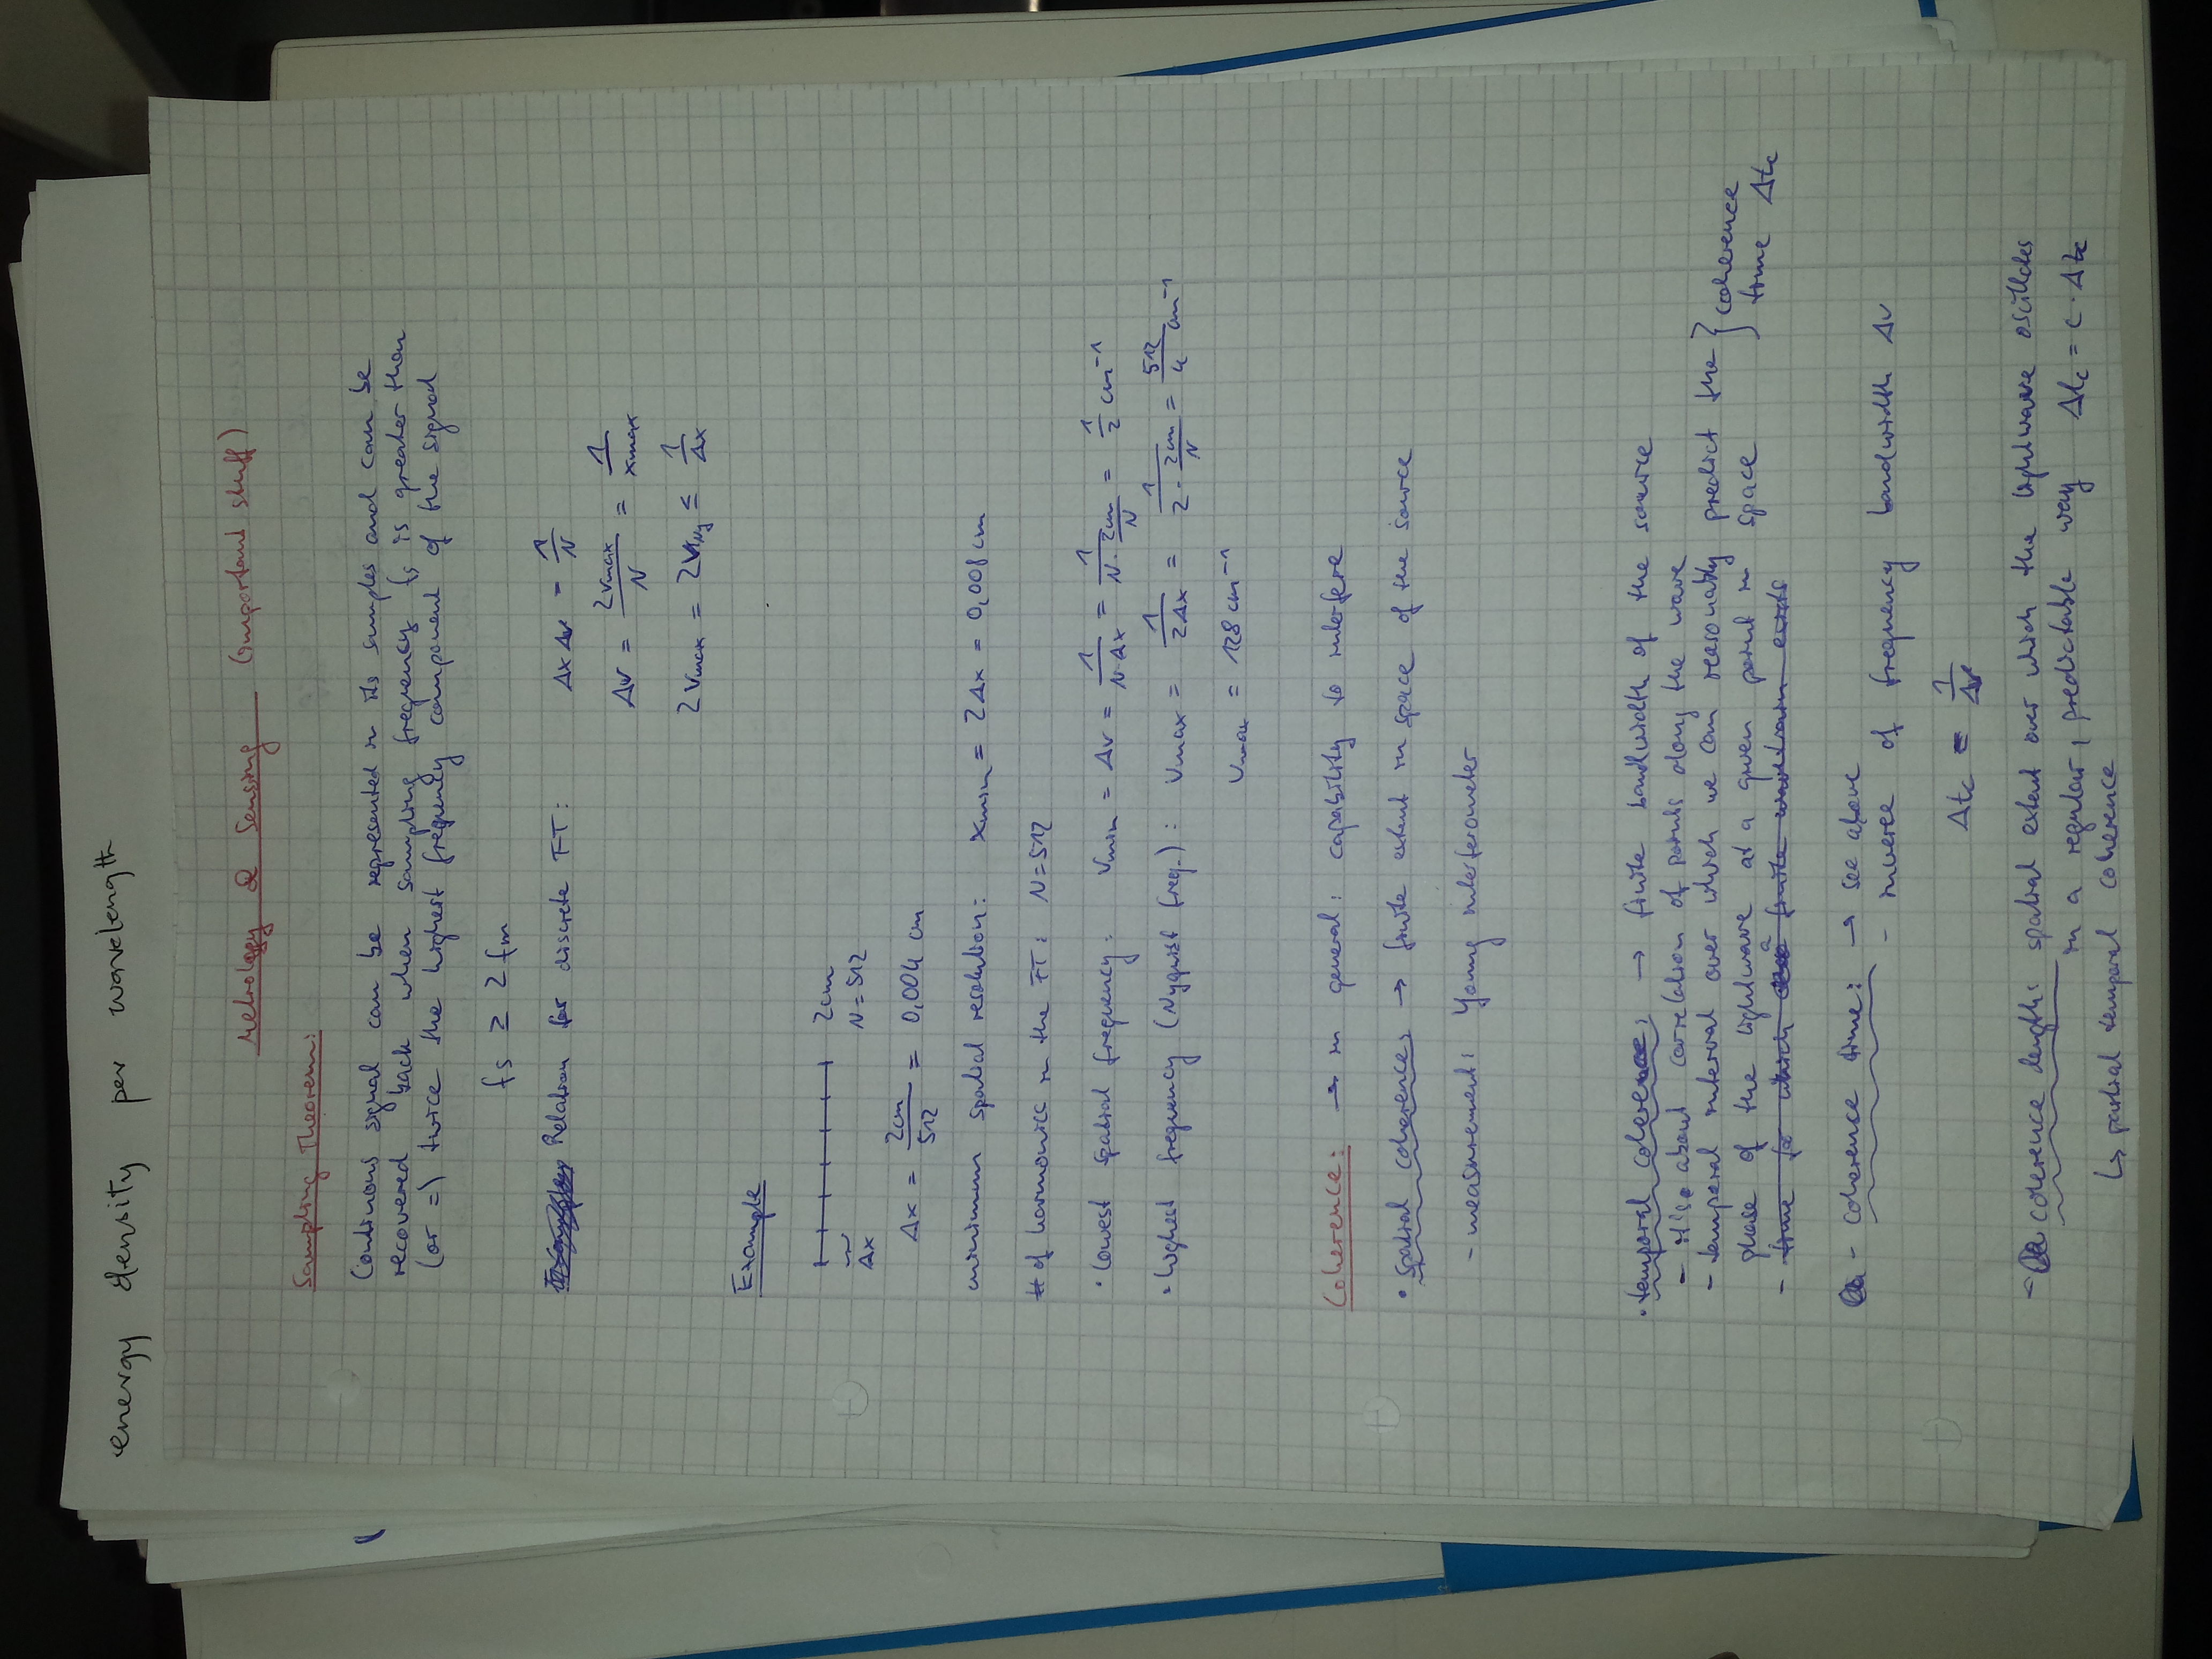 energy density per wavelength
Metrology & Sensing (important stuff)
Sampling Theorem:
Continous signal can be represented in its samples and can be
recovered back when sampling frequency fs is greater than
(or =) twice the highest frequency component of the signal
fs ≥ 2fm
Relation for discrete FT: Δx Δν = 1/N
Δν = 2νmax/N = 1/xmax
2νmax = 2νNy ≤ 1/Δx
Example
2cm
Δx N=512
Δx = 2cm/512 = 0,004 cm
minimum spatial resolution: xmin = 2Δx = 0,008 cm
# of harmonics in the FT: N=512
• lowest spatial frequency: νmin = Δν = 1/(N·Δx) = 1/(N·2cm/N) = 1/2 cm⁻¹
• highest frequency (Nyquist freq.): νmax = 1/(2Δx) = 1/(2·2cm/N) = 512/4 cm⁻¹
νmax = 128 cm⁻¹
Coherence: → in general: capability to interfere
• spatial coherence: → finite extent in space of the source
- measurement: Young interferometer
• temporal coherence: → finite bandwidth of the source
- it's about correlation of points along the wave
- temporal interval over which we can reasonably predict the
phase of the lightwave at a given point in space } coherence time Δtc
- time for which a finite wavetrain exists
- coherence time: → see above
- inverse of frequency bandwidth Δν
Δtc = 1/Δν
- coherence length: spatial extent over which the lightwave oscillates
in a regular, predictable way Δlc = c · Δtc
↳ partial temporal coherence